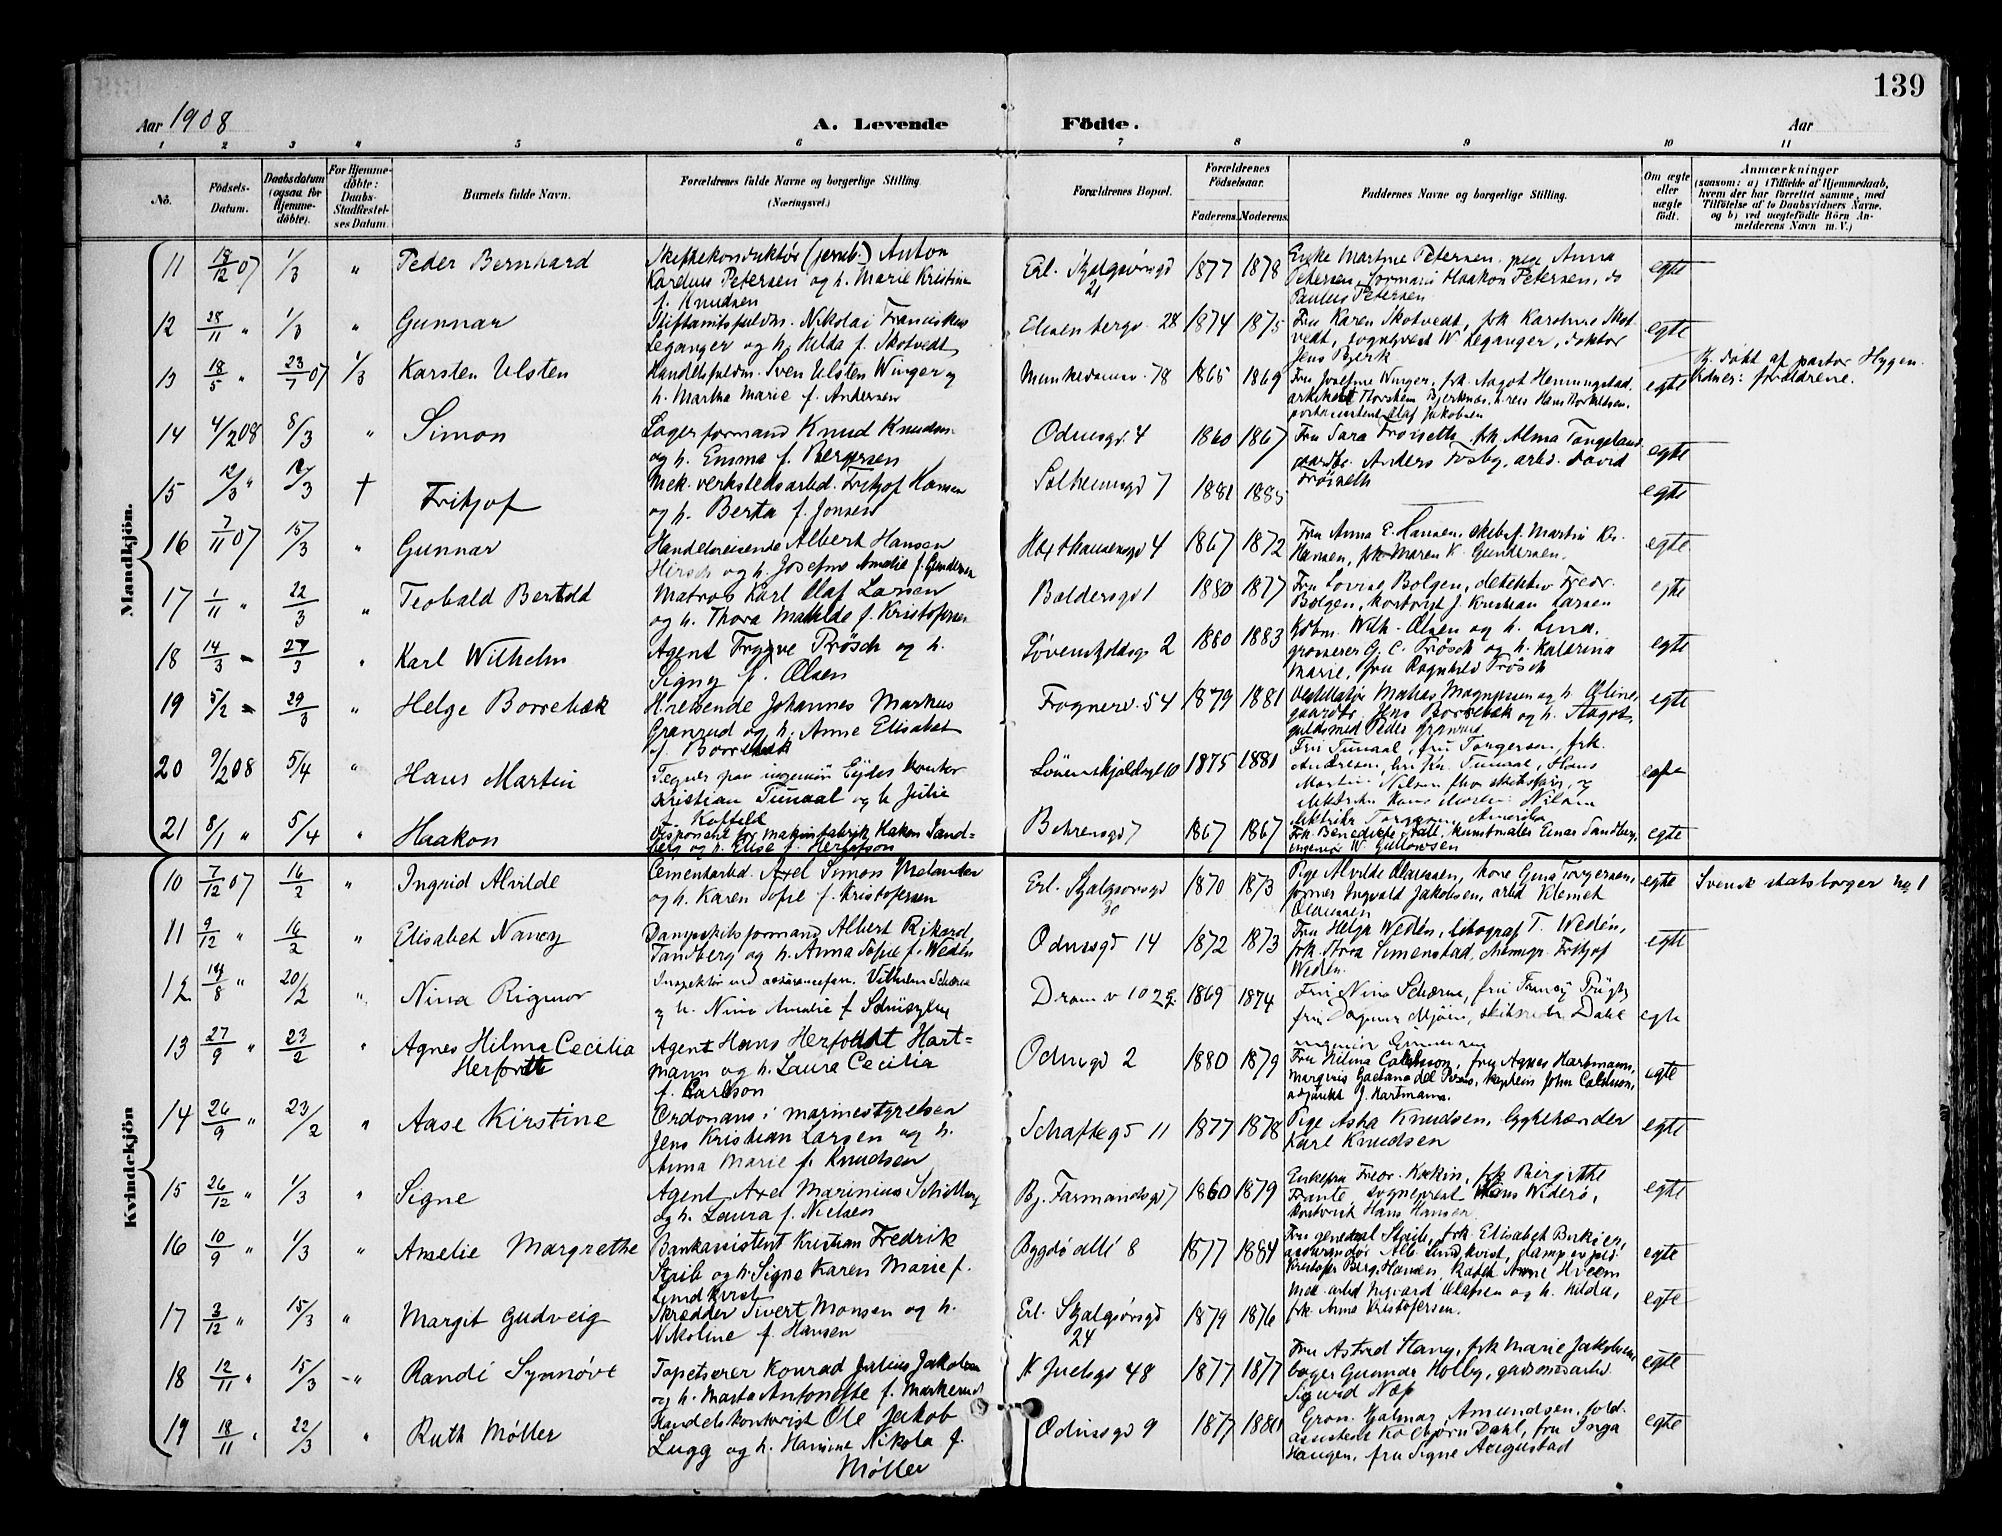 139
Aar 1908
A. Levende Födte.
Aar
1 2 3 4 5 6 7 8 9 10 11
No.
Födsels-
Datum.
Daabsdatum
(ogsaa for
Hjemme-
döbte).
For Hjemme-
döbte:
Daabs-
Stadfæstel-
ses Datum.
Barnets fulde Navn.
Forældrenes fulde Navne og borgerlige Stilling.
(Næringsvei.)
Forældrenes Bopæl.
Forældrenes
Födselsaar.
Faderens. Moderens.
Faddernes Navne og borgerlige Stilling.
Om ægte
eller
uægte
födt.
Anmærkninger
(saasom: a) i Tilfælde af Hjemmedaab,
hvem der har forrettet samme, med
Tilföielse af to Daabsvidners Navne,
og b) ved uegtefödte Börn An-
melderens Navn m. V.)
Mandkjön.
11 18/12 07 1/3 " Peder Bernhard
Skiftekonduktør (jernb.) Anton
Petersen og h. Marie Kristine
f. Knudsen
Erl. Skjalgsönsgd
21
1877 1878
Enke Martine Petersen, pige Anna
Petersen, formand Haakon Petersen, do
Paulus Petersen
egte
12 28/11 " 1/3 " Gunnar
Nikolai Franciskus
Leganger og h. Hilda f. Skotvedt
Eilsenbergv. 28 1874 1875
Fru Karen Skotvedt, frk Karoline Skot
vedt, W. Leganger, doktor
Jens Bjerk
egte
13 18/5 " 23/7 07 1/3 Karsten Ulsten
Sven Ulsten Winger og
h. Marthe Marie f. Andersen
Munkedamsv. 78 1865 1869
Fru Josefine Winger, frk. Aagot Henningstad,
arkitekt Thorstein Bjerknæs,
Olaf Jakobsen
egte
Hj. døbt af pastor Hygen.
Vidner: forældrene.
14 4/2 08 8/3 " Simon
Lagerformand Knud Knudsen
og h. Emma f. Bergersen
Odinsgd 4 1860 1867
Fru Sara Frøiseth, frk Alma Tangeland
gaardbr. Anders Fosby, arbd. David
Frøiseth
egte
15 12/3 " 12/3 † Fritjof
Mek. verkstedsarbd. Fritjof Hansen
og h. Berta f. Jonsen
Solheimsgd 7 1881 1885
egte
16 7/11 07 15/3 " Gunnar
Handelsreisende Albert Hansen
Hirsch og h. Josefine Amalie f. Gundersen
Holthausensgd 4 1867 1872
Fru Anna E. Hansen, skibsf. Martin Kr.
Hansen, frk Maren K. Gundersen.
egte
17 1/11 " 22/3 " Teobald Bertold
Matros Karl Olaf Larsen
og h. Thora Matilde f. Kristofersen
Baldersgd 1 1880 1877
Fru Lovise Bolgen, detektiv Fredr.
Bolgen, kontorist J. Kristian Larsen
egte
18 14/3 " 27/3 " Karl Wilhelm
Agent Trygve Prösch og h.
Signy f. Olsen
Løvenskjoldsgd 2 1880 1883
Kjøbm. Wilh. Olsen og h. Lina,
grosserer G. C. Prösch og h. Katarina
Marie, fru Ragnhild Prösch
egte
19 5/2 " 29/3 " Helge Borrebæk
H.reisende Johannes Markus
Granrud og h. Anne Elisabet
f. Borrebæk
Frognerv. 54 1879 1881
Destillatør Matias Magnussen og h. Oline,
gaardbr Jens Borrebæk og h. Aagot,
guldsmed Peder Granrud
egte
20 9/2 08 5/4 " Hans Martin
Tegner paa ingeniør Eydes kontor
Kristian Tunaal og h Julie
f. Koffeld
Løvenskjoldsgd 10 1875 1881
Fru Tunaal, fru Torgersen, frk.
Andresen, Kr. Tunaal, Hans
Martin Nilsen
egte
21 8/1 " 5/4 " Haakon
Disponent for maskinfabrik Hakon Sand-
berg og h. Elise f. Herlofson
Behrensgd 7 1867 1867
Frk. Benedicte Aall, kunstmaler Einar Sandberg,
ingeniør W. Gulowsen
egte
Kvindekjön
10 7/12 07 16/2 " Ingrid Alvilde
Cementarbd. Axel Simon Melander
og h. Karen Sofie f. Kristofersen
Erl. Skjalgsönsgd
30
1870 1873
Pige Alvilde Olaussen, kone Gina Torgersen,
former Ingvald Jakobsen, arbd Klemet
Olaussen
egte
Svensk statsborger no 1
11 9/12 " 16/2 " Elisabet Nancy
Dampskibsformand Albert Rikard
Tandberg og h. Anna Sofie f. Wedén
Odinsgd 14 1872 1873
Fru Helga Wedén, litograf T. Wedén,
frk. Thora Simenstad, Fritjof
Wedén.
egte
12 14/8 " 20/2 " Nina Rigmor
Inspektør ved assuranceforen. Vilhelm Schærne
og h. Nina Amalie f
Dram v 102 1869 1874
Fru Nina Schærne, fru
fru Dagmar Mjøen, Dahl
egte
13 27/9 " 23/2 " Agnes Hilma Cecilia
Herfordt
Agent Hans Herfordt Hart-
mann og h. Laura Cecilia
f. Carlson
Odinsgd 2 1880 1879
Fru Hilma Carlsson, fru Agnes Hartmann,
Marquis Gaetano del kaptein John Carlsson,
J. Hartmann.
egte
14 26/9 " 23/2 " Aase Kirstine
Ordonans i marinestyrelsen
Jens Kristian Larsen og h.
Anna Marie f. Knudsen
Schaftegd 11 1877 1878
Pige Asta Knudsen, lygtetænder
Karl Knudsen
egte
15 26/12 " 1/3 " Signe
Agent Axel Marinius Schiölberg
og h. Laura f. Nielsen
Bj. Farmandsgd 7 1860 1879
Enkefru Fredr. frk Birgitte
sogneprest Hans Widerø,
kontorist Hans Hansen
egte
16 10/9 " 1/3 " Amelie Margrethe
Bankassistent Kristian Fredrik
Staib og h. Signe Karen Marie f.
Lindkvist
Bygdø allé 8 1877 1884
Fru general Staib, frk. Elisabet
Alb. Lindkvist,
Kristofer Berg Hansen,
egte
17 3/12 " 15/3 " Margit Gudveig
Skrædder Sivert Monsen og h.
Nikoline f. Hansen
Erl. Skjalgsönsgd
24
1879 1876
Mek. arbd Ingvard Olafsen og h. Hilda,
frk. Anna Kristofersen.
egte
18 12/11 " 15/3 " Randi Synnøve
Tapetserer Konrad Julius Jakobsen
og h. Marta Antonette f. Markerud
N Juelsgd 48 1877 1877
Fru Astrid Stang, frk Marie Jakobsen
bager Gunnar Holby, gadesmedarbd.
Sigurd Næp
egte
19 18/11 " 22/3 " Ruth Møller
Handelskontorist Ole Jakob
Lugg og h. Hansine Nikola f.
Møller
Odinsgd 9 1877 1880
Hjalmar Amundsen, told-
assistent Kolbjørn Dahl, fru Inga
Haugen, fru Signe Augustad
egte